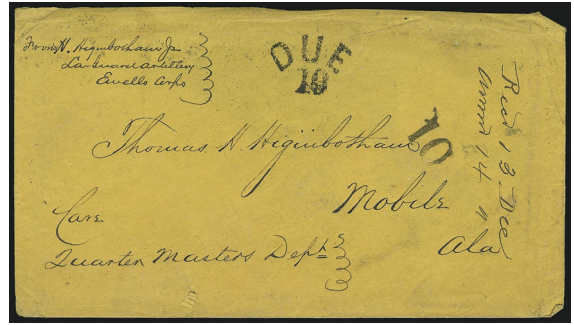 From H. Higinbotham Jr
La Guard Artillery
Ewells Corps
DUE
10
10
Thomas H. Higinbotham
Mobile
Ala
Care
Quarter Masters Dept
Recd 13 Dec
14 "